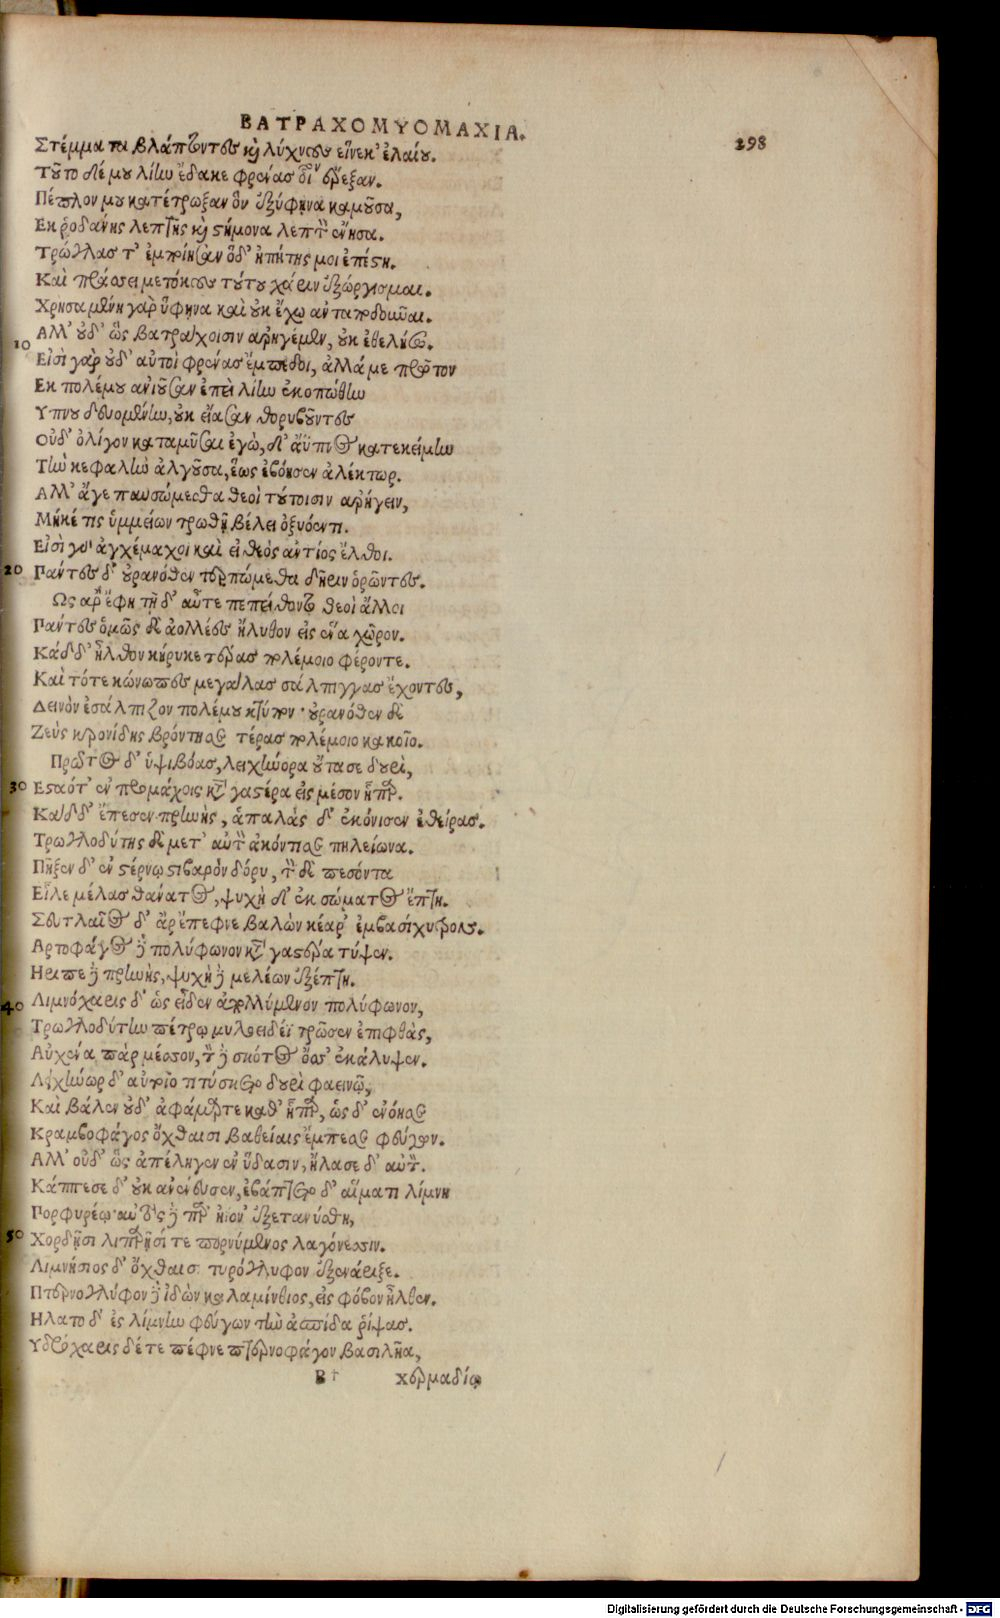 ΒΑΤΡΑΧΟΜΥΟΜΑΧΙΑ.
298
Στέμματα βλάπτοντες καὶ λύχνους εἵνεκ' ἐλαίου.
Τοῦτο δέ μου λίην ἔδακε φρένας οἷόν
Πέπλον μου κατέτρωξαν ὃν ἐξύφηνα καμοῦσα,
Εκ ῥοδάνης λεπτῆς καὶ στήμονα λεπτὸν ἔνησα.
Τρώγλας τ' ἐμποίησαν ὅδ' ἠπήτης μοι ἐπέστη.
Καὶ πράσσει με τόκους τούτου χάριν ἐξώργισμαι.
Χρησαμένη γὰρ ὕφηνα καὶ οὐκ ἔχω ἀνταποδοῦναι.
10
Αλλ' οὐδ' ὣς βατράχοισιν ἀρηγέμεν, οὐκ ἐθελήσω.
Εἰσὶ γὰρ οὐδ' αὐτοὶ φρένας ἔμπεδοι, ἀλλά με πρῶτον
Εκ πολέμου ἀνιοῦσαν ἐπεὶ λίην ἐκοπώθην
Υπνου δευομένην, οὐκ εἴασαν θορυβοῦντες
Οὐδ' ὀλίγον καταμῦσαι ἐγὼ, δ' ἄϋπνος κατεκείμην
Τὴν κεφαλὴν ἀλγοῦσα, ἕως ἐβόησεν ἀλέκτωρ.
Αλλ' ἄγε παυσώμεσθα θεοὶ τούτοισιν ἀρήγειν,
Μήκέ τις ὑμμείων τρωθῇ βέλει ὀξυόεντι.
Εἰσὶ γὰρ ἀγχέμαχοι καὶ εἰ θεὸς ἀντίος ἔλθοι.
20
Πάντες δ' οὐρανόθεν τερπώμεθα δῆριν ὁρῶντες.
Ως ἄρ' ἔφη τῇ δ' αὖτε πεπείθοντο θεοὶ ἄλλοι
Πάντες ὁμῶς δὲ ἀολλέες ἤλυθον εἰς ἕνα χῶρον.
Κάδδ' ἦλθον κήρυκε τέρας πολέμοιο φέροντε.
Καὶ τότε κώνωπες μεγάλας σάλπιγγας ἔχοντες,
Δεινὸν ἐσάλπιζον πολέμου κτύπον· οὐρανόθεν δὲ
Ζεὺς κρονίδης βρόντησε τέρας πολέμοιο κακοῖο.
Πρῶτος δ' ὑψιβόας, λειχήνορα οὔτασε δουρὶ,
30
Εσταότ' ἐν προμάχοις κατὰ γαστέρα εἰς μέσον ἧπαρ.
Καδδ' ἔπεσεν πρηνὴς, ἁπαλὰς δ' ἐκόνισεν ἐθείρας.
Τρωγλοδύτης δὲ μετ' αὐτὸν ἀκόντισε πηλείωνα.
Πῆξεν δ' ἐν στέρνῳ στιβαρὸν δόρυ, τὸν δὲ πεσόντα
Εἷλε μέλας θάνατος, ψυχὴ δ' ἐκ σώματος ἔπτη.
Σευτλαῖος δ' ἄρ' ἔπεφνε βαλὼν κέαρ ἐμβασίχυτρον.
Αρτοφάγος δὲ πολύφωνον κατὰ γαστέρα τύψεν.
Ηριπε δὲ πρηνὴς, ψυχὴ δὲ μελέων ἐξέπτη.
40
Λιμνόχαρις δ' ὡς εἶδεν ἀπολλύμενον πολύφωνον,
Τρωγλοδύτην πέτρῳ μυλοειδέϊ τρῶσεν ἐπιφθὰς,
Αὐχένα πὰρ μέσσον, τὸν δὲ σκότος ὄσσ' ἐκάλυψεν.
Λειχήνωρ δ' αὐτοῖο τιτύσκετο δουρὶ φαεινῷ,
Καὶ βάλεν οὐδ' ἀφάμαρτε καθ' ἧπαρ, ὡς δ' ἐνόησε
Κραμβοφάγος ὄχθαισι βαθείαις ἔμπεσε φεύγων.
Αλλ' οὐδ' ὣς ἀπέληγεν ἐν ὕδασιν, ἤλασε δ' αὐτόν.
Κάππεσε δ' οὐκ ἀνένευσεν, ἐβάπτετο δ' αἵματι λίμνη
Πορφυρέῳ αὐτὸς δὲ παρ' ἠϊόν' ἐξετανύσθη,
50
Χορδῇσι λιπαρῇσί τε πορνύμενος λαγόνεσσιν.
Λιμνήσιος δ' ὄχθαισι τυρόγλυφον ἐξενάριξε.
Πτερνογλύφον δὲ ἰδὼν καλαμίνθιος, εἰς φόβον ἦλθεν.
Ηλατο δ' ἐς λίμνην φεύγων τὴν ἀσπίδα ῥίψας.
Υδρόχαρις δέ τε πέφνε πτερνοφάγον βασιλῆα,
Β
χερμαδίῳ
Digitalisierung gefördert durch die Deutsche Forschungsgemeinschaft - DFG